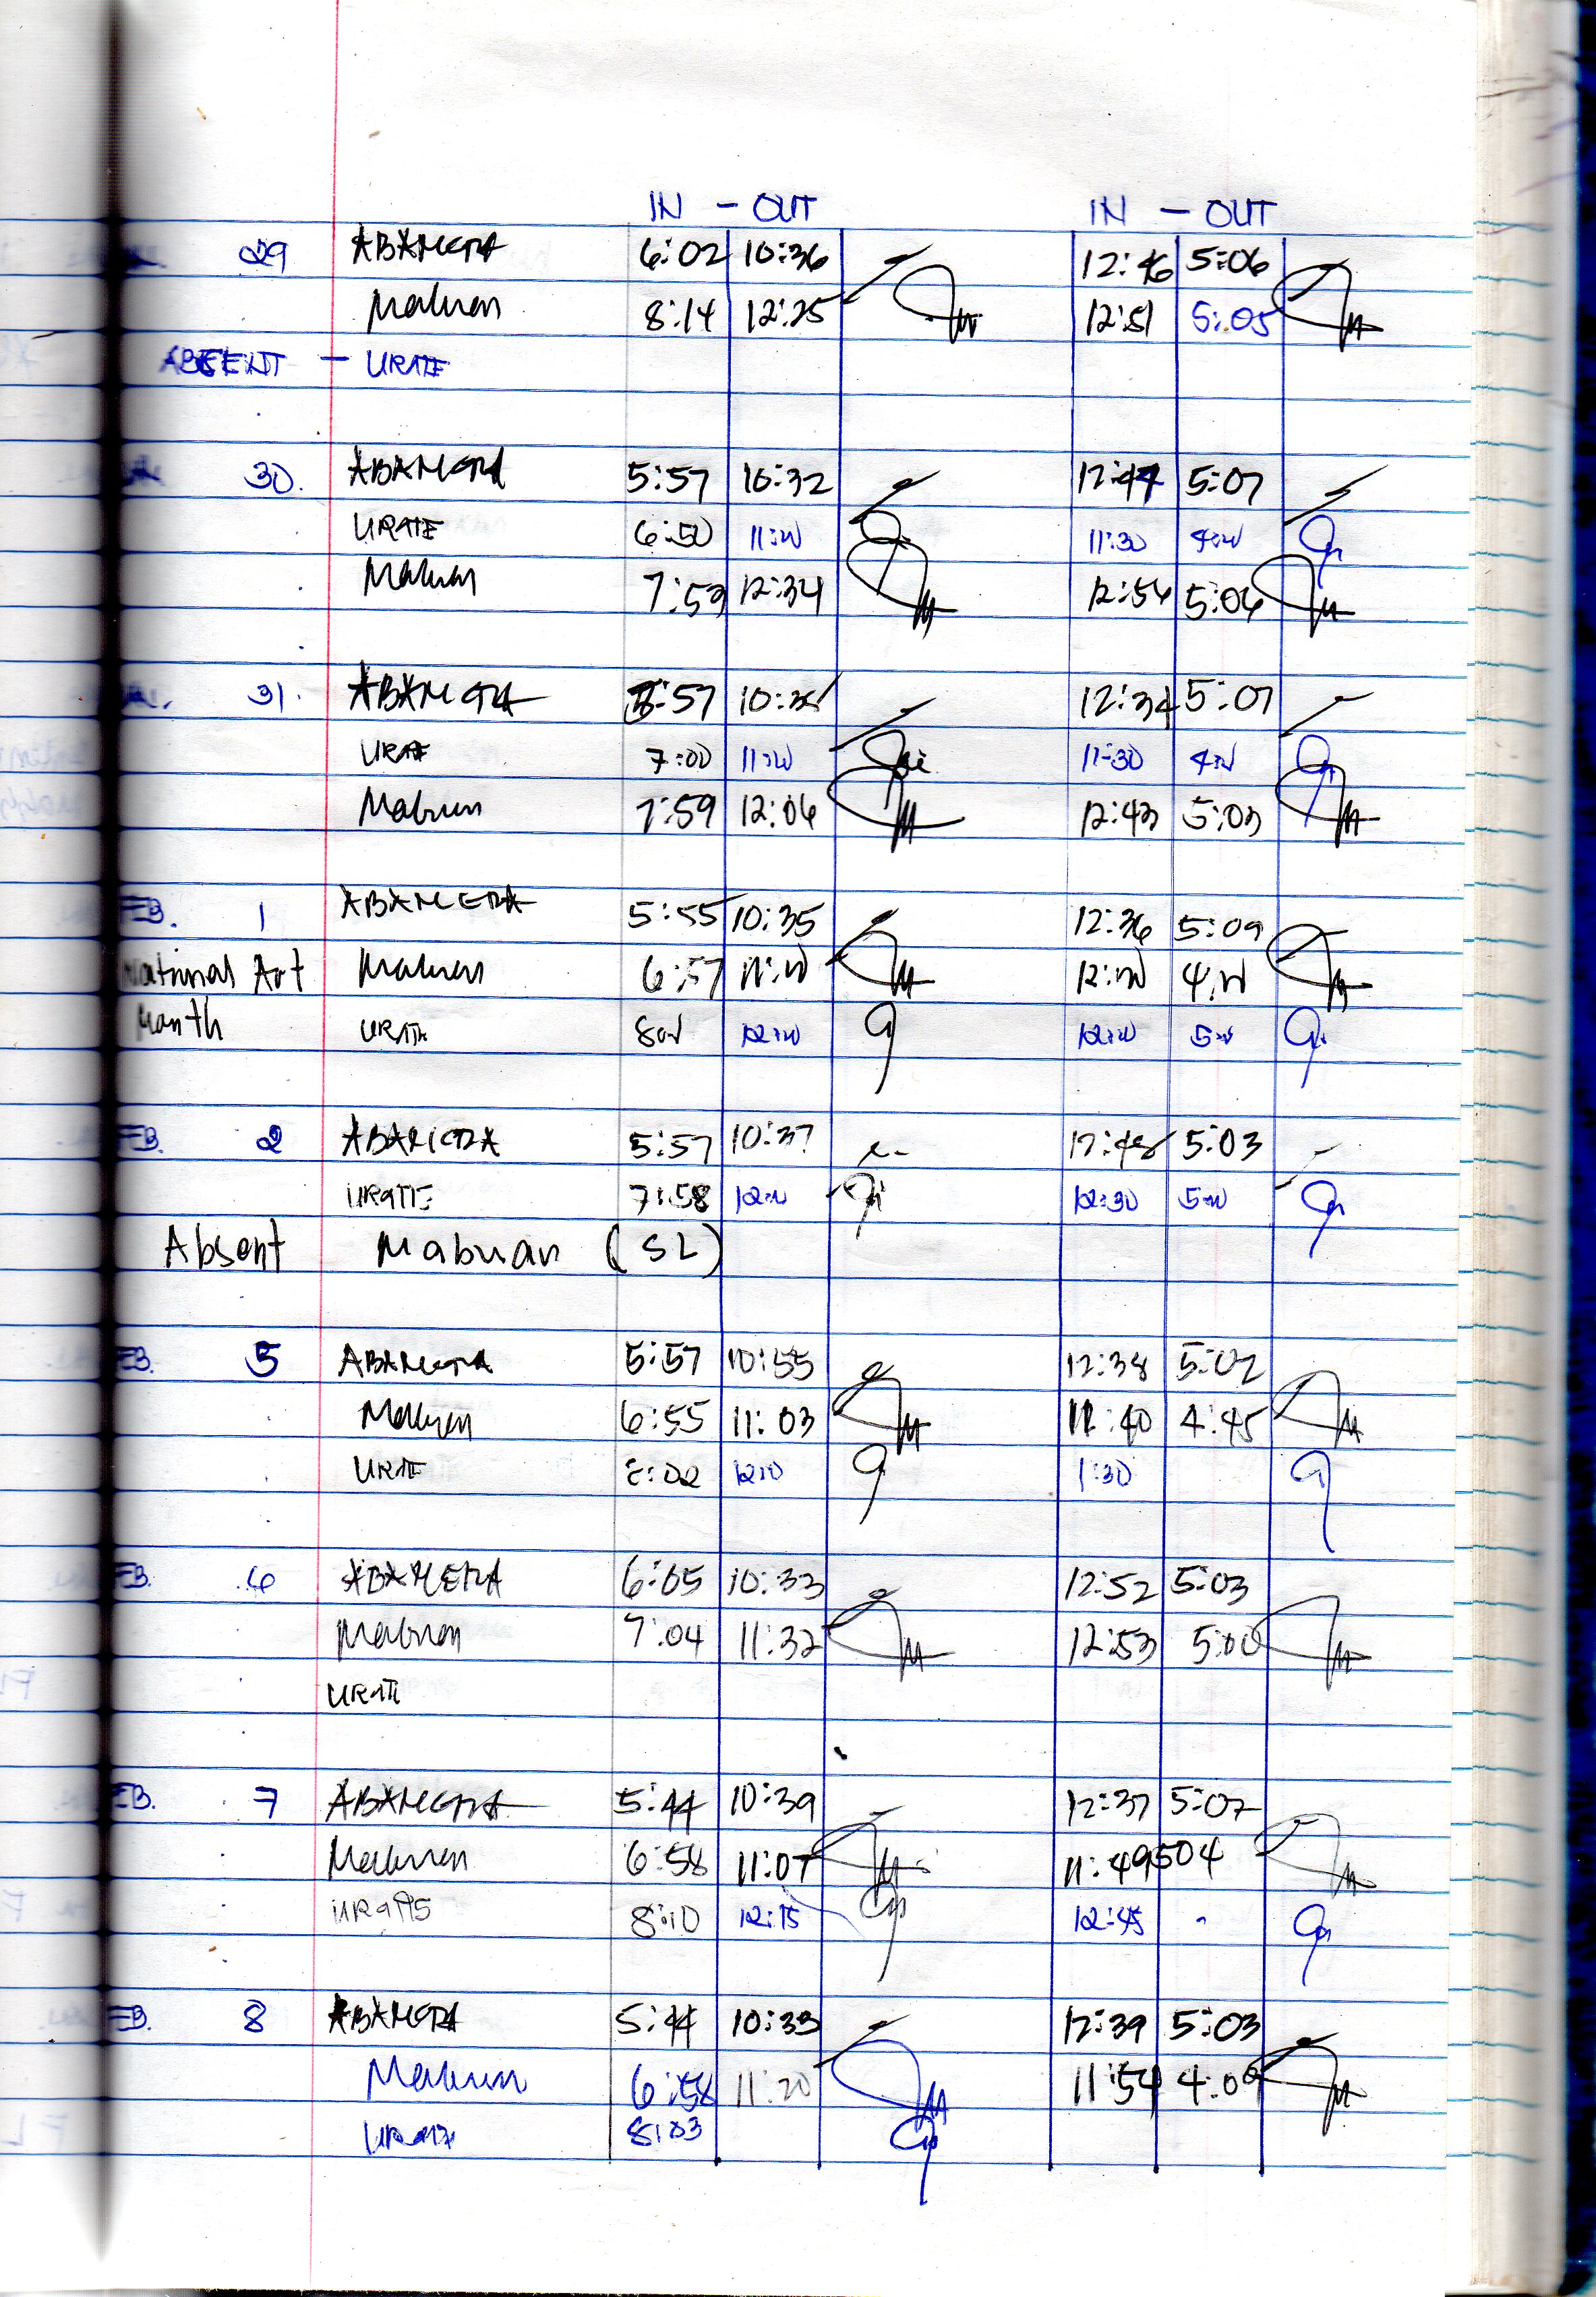 IN - OUT IN - OUT
29 ABANERA 6:02 10:36 12:46 5:06
Mabuan 8:14 12:25 12:51 5:05
ABSENT - URATE
30. ABANERA 5:57 10:32 12:44 5:07
URATE 6:50 11:00 11:30 4:00
Mabuan 7:53 12:34 12:54 5:04
31. ABANERA 5:57 12:34 5:07
URATE 7:00 11:00 11:30 4:00
Mabuan 7:59 12:04 12:43 5:03
FEB. 1 ABANERA 5:55 10:35 12:36 5:09
National Art Mabuan 6:57 11:00 12:00 4:00
Month URATE 8:00 12:00 12:00 5:00
FEB. 2 ABANERA 5:57 10:37 12:48 5:03
URATE 7:58 12:00 12:30 5:00
Absent Mabuan (SL)
FEB. 5 ABANERA 5:57 10:55 12:38 5:02
Mabuan 6:55 11:03 11:40 4:45
URATE 8:02 12:10 1:30
FEB. 6 ABANERA 6:05 10:33 12:52 5:03
Mabuan 7:04 11:32 12:53 5:00
URATE
FEB. 7 ABANERA 5:44 10:39 12:37 5:07
Mabuan 6:58 11:07 11:49 504
URATE 8:10 12:15 12:45 -
FEB. 8 ABANERA 5:44 10:33 12:39 5:03
Mabuan 6:58 11:20 11:54 4:09
URATE 8:03